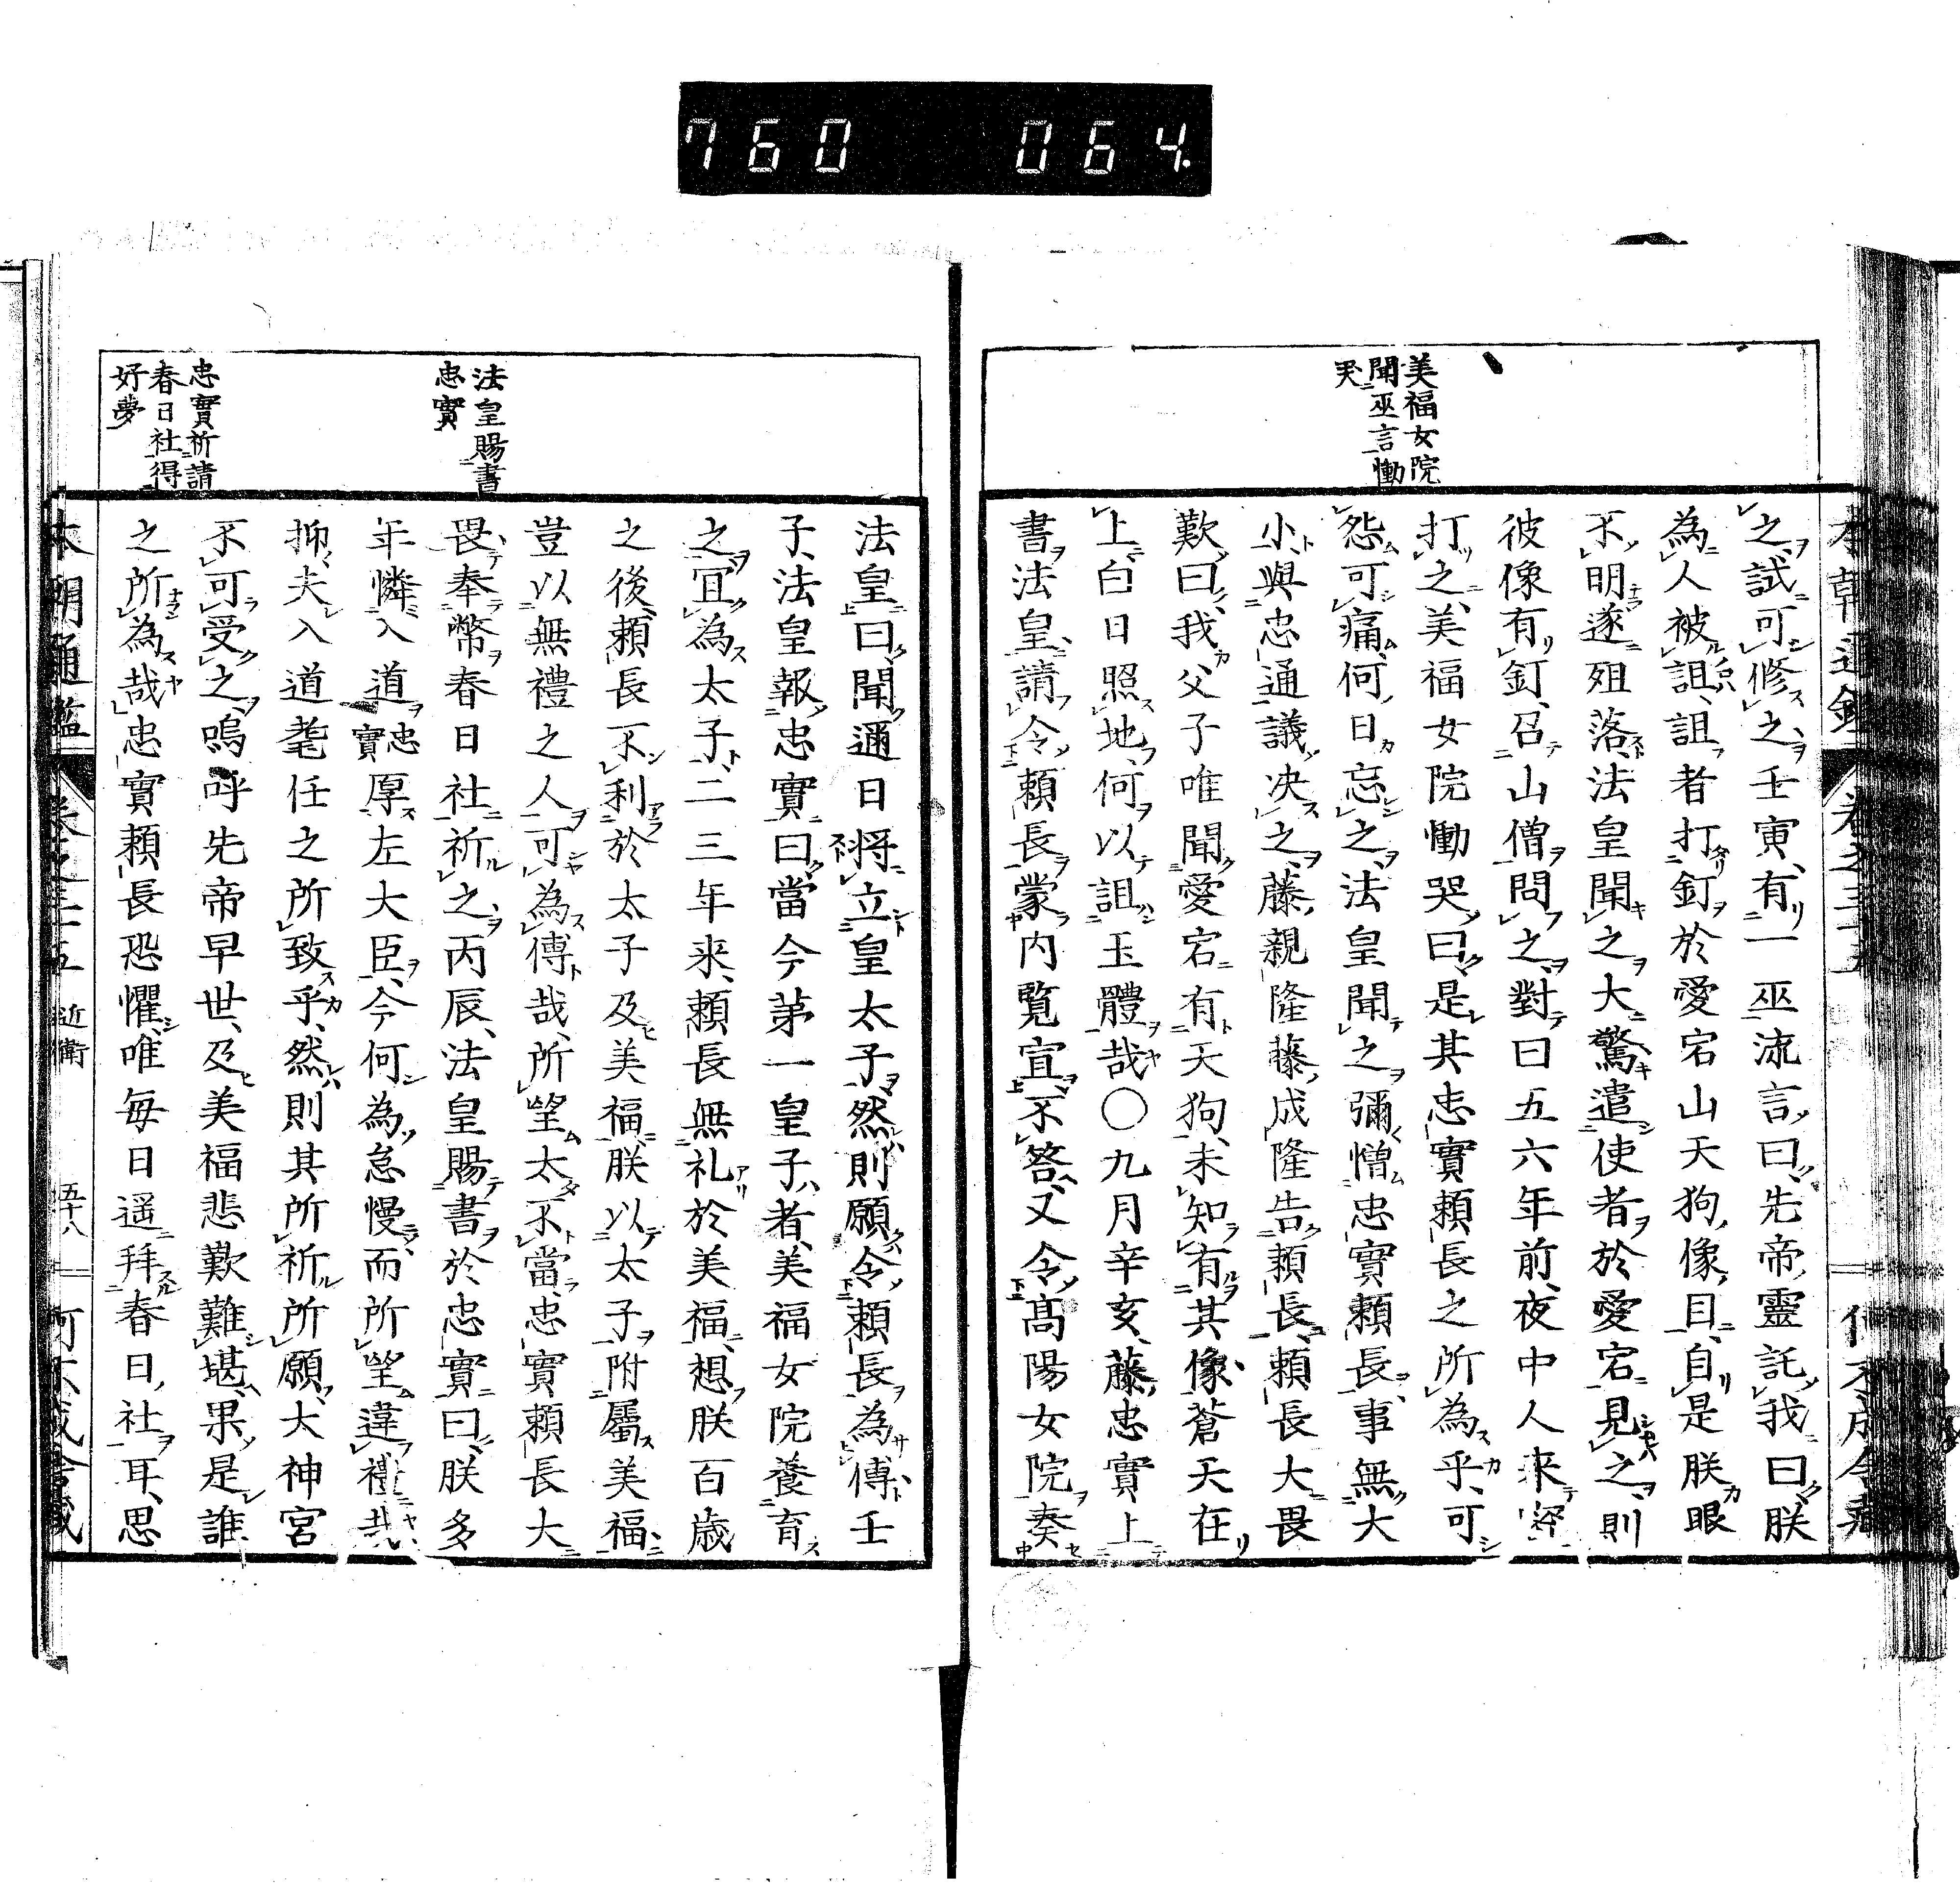 760 064
美福女院
聞巫言慟
哭
之試可修之壬寅有一巫流言曰先帝靈託我曰朕
為人被詛詛者打釘於愛宕山天狗像目自是朕眼
不明遂殂落法皇聞之大驚遣使者於愛宕見之則
彼像有釘召山僧問之對曰五六年前夜中人来密
打之美福女院慟哭曰是其忠實頼長之所為乎可
怨可痛何日忘之法皇聞之彌憎忠實頼長事無大
小與忠通議决之藤親隆藤成隆告頼長頼長大畏
歎曰我父子唯聞愛宕有天狗未知有其像蒼天在
上白日照地何以詛玉體哉〇九月辛亥藤忠實上
書法皇請令頼長蒙内覧宣不答又令髙陽女院奏
法皇賜書
忠實
忠實祈請
春日社得
好夢
法皇曰聞通日将立皇太子然則願令頼長為傅壬
子法皇報忠實曰當今第一皇子者美福女院養育
之冝為太子二三年来頼長無礼於美福想朕百歳
之後頼長不利於太子及美福朕以太子附屬美福
豈以無禮之人可為傅哉所望太不當忠實頼長大
畏奉幣春日社祈之丙辰法皇賜書於忠實曰朕多
年憐入道忠實厚左大臣今何為怠慢而所望違禮哉
抑夫入道耄任之所致乎然則其所祈所願大神宮
不可受之嗚呼先帝早世及美福悲歎難堪果是誰
之所為哉忠實頼長恐懼唯毎日遥拜春日社耳思
本朝通鑑 巻之三十五 近衛 五十八